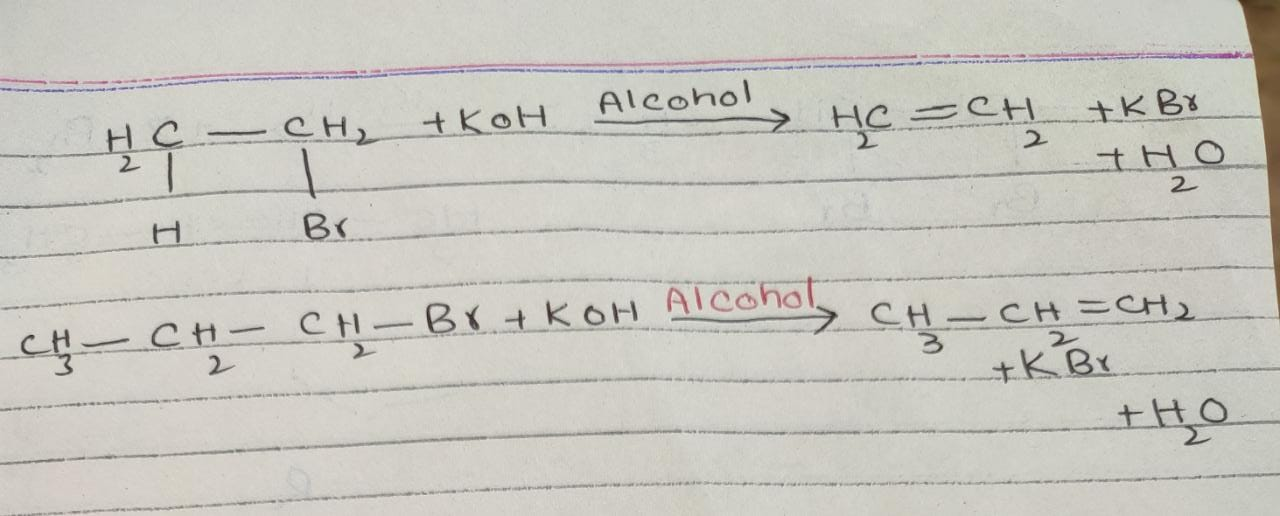 H₂C — CH₂ + KOH Alcohol → H₂C = CH₂ + KBr
+ H₂O
H Br
CH₃ — CH₂ — CH₂ — Br + KOH Alcohol → CH₃ — CH₂ = CH₂
+ KBr
+ H₂O